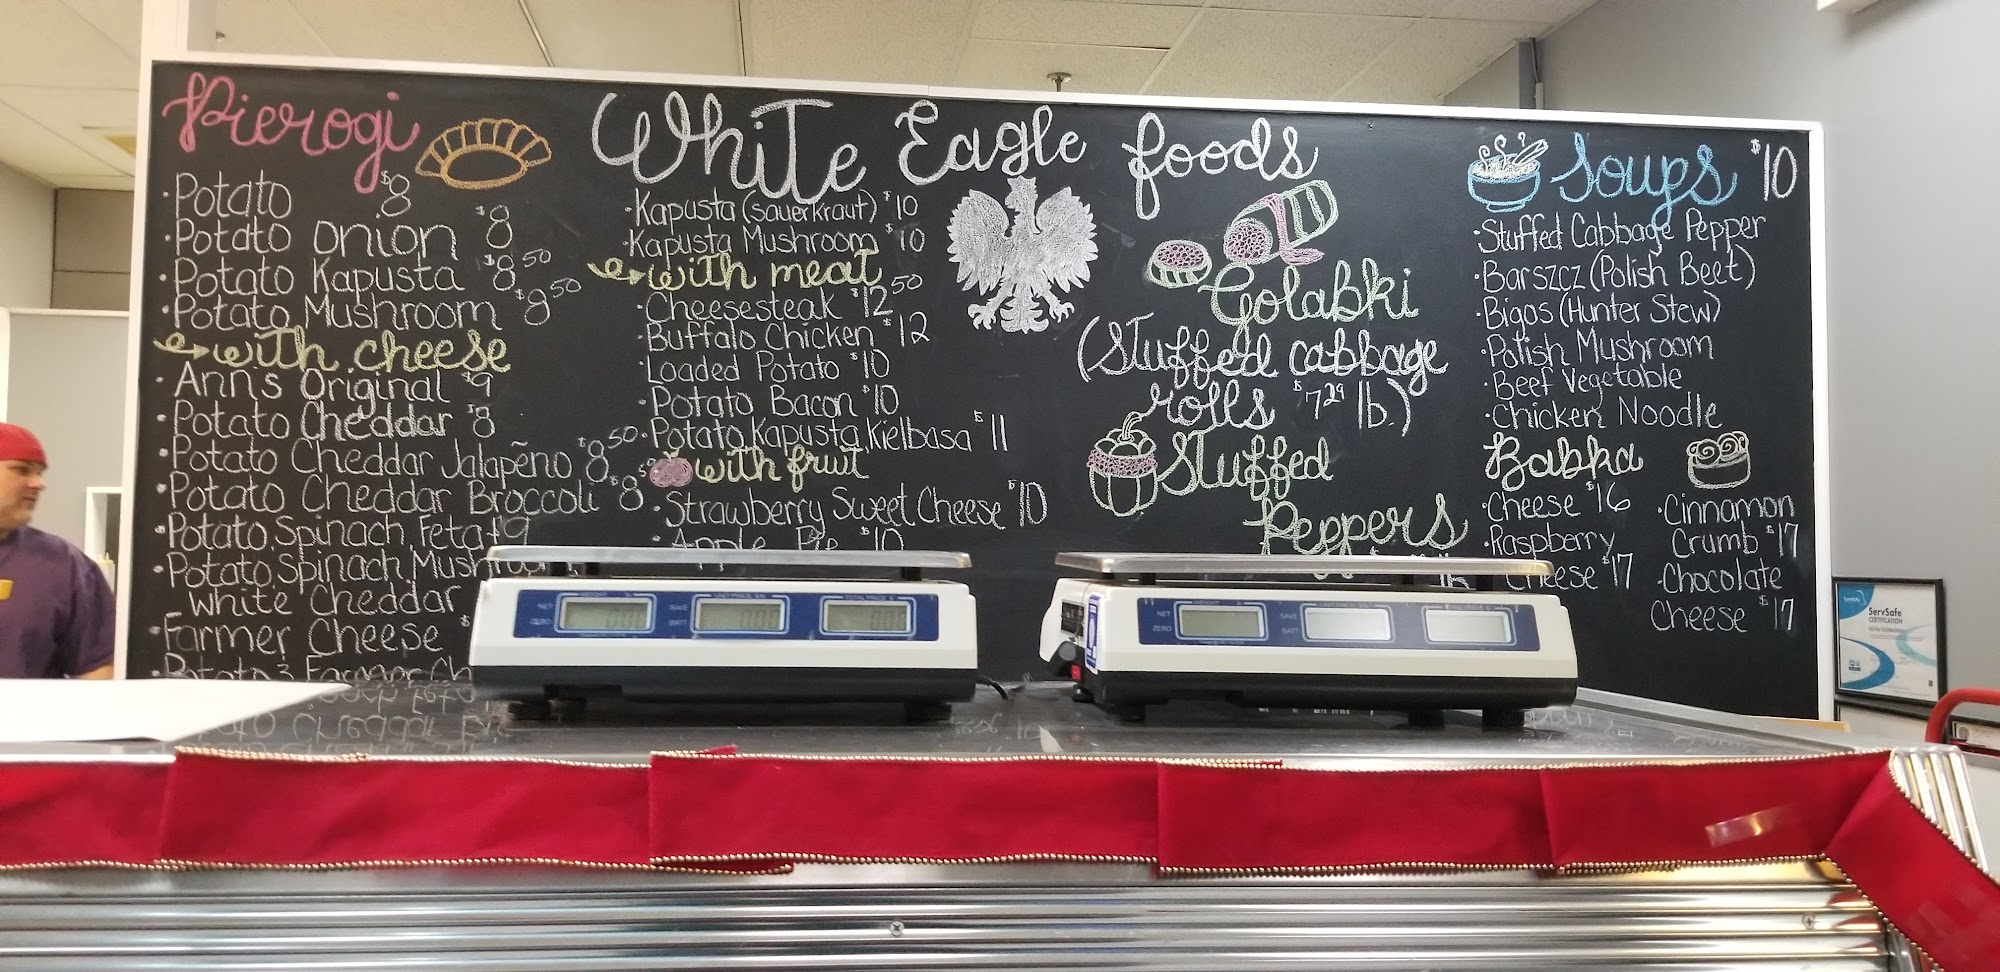 Pierogi
• Potato $8
• Potato onion $8
• Potato Kapusta $8.50
• Potato Mushroom $8.50
with cheese
• Ann's Original $9
• Potato Cheddar $8
• Potato Cheddar Jalapeño $8.50
• Potato Cheddar Broccoli $8.50
• Potato Spinach Feta $9
• Potato Spinach Mushroom
White Cheddar
• Farmer Cheese
White Eagle foods
• Kapusta (sauerkraut) $10
• Kapusta Mushroom $10
with meat
• Cheesesteak $12.50
• Buffalo Chicken $12
• Loaded Potato $10
• Potato Bacon $10
• Potato Kapusta Kielbasa $11
with fruit
• Strawberry Sweet Cheese $10
• Apple Pie $10
Golabki
(Stuffed cabbage
rolls $7.29 lb.)
Stuffed
Peppers
Soups $10
• Stuffed Cabbage Pepper
• Barszcz (Polish Beet)
• Bigos (Hunter Stew)
• Polish Mushroom
• Beef Vegetable
• Chicken Noodle
Babka
• Cheese $16
• Raspberry
Cheese $17
• Cinnamon
Crumb $17
• Chocolate
Cheese $17
ServSafe
CERTIFICATION
NET
ZERO
SAVE
BATT
NET
ZERO
SAVE
BATT